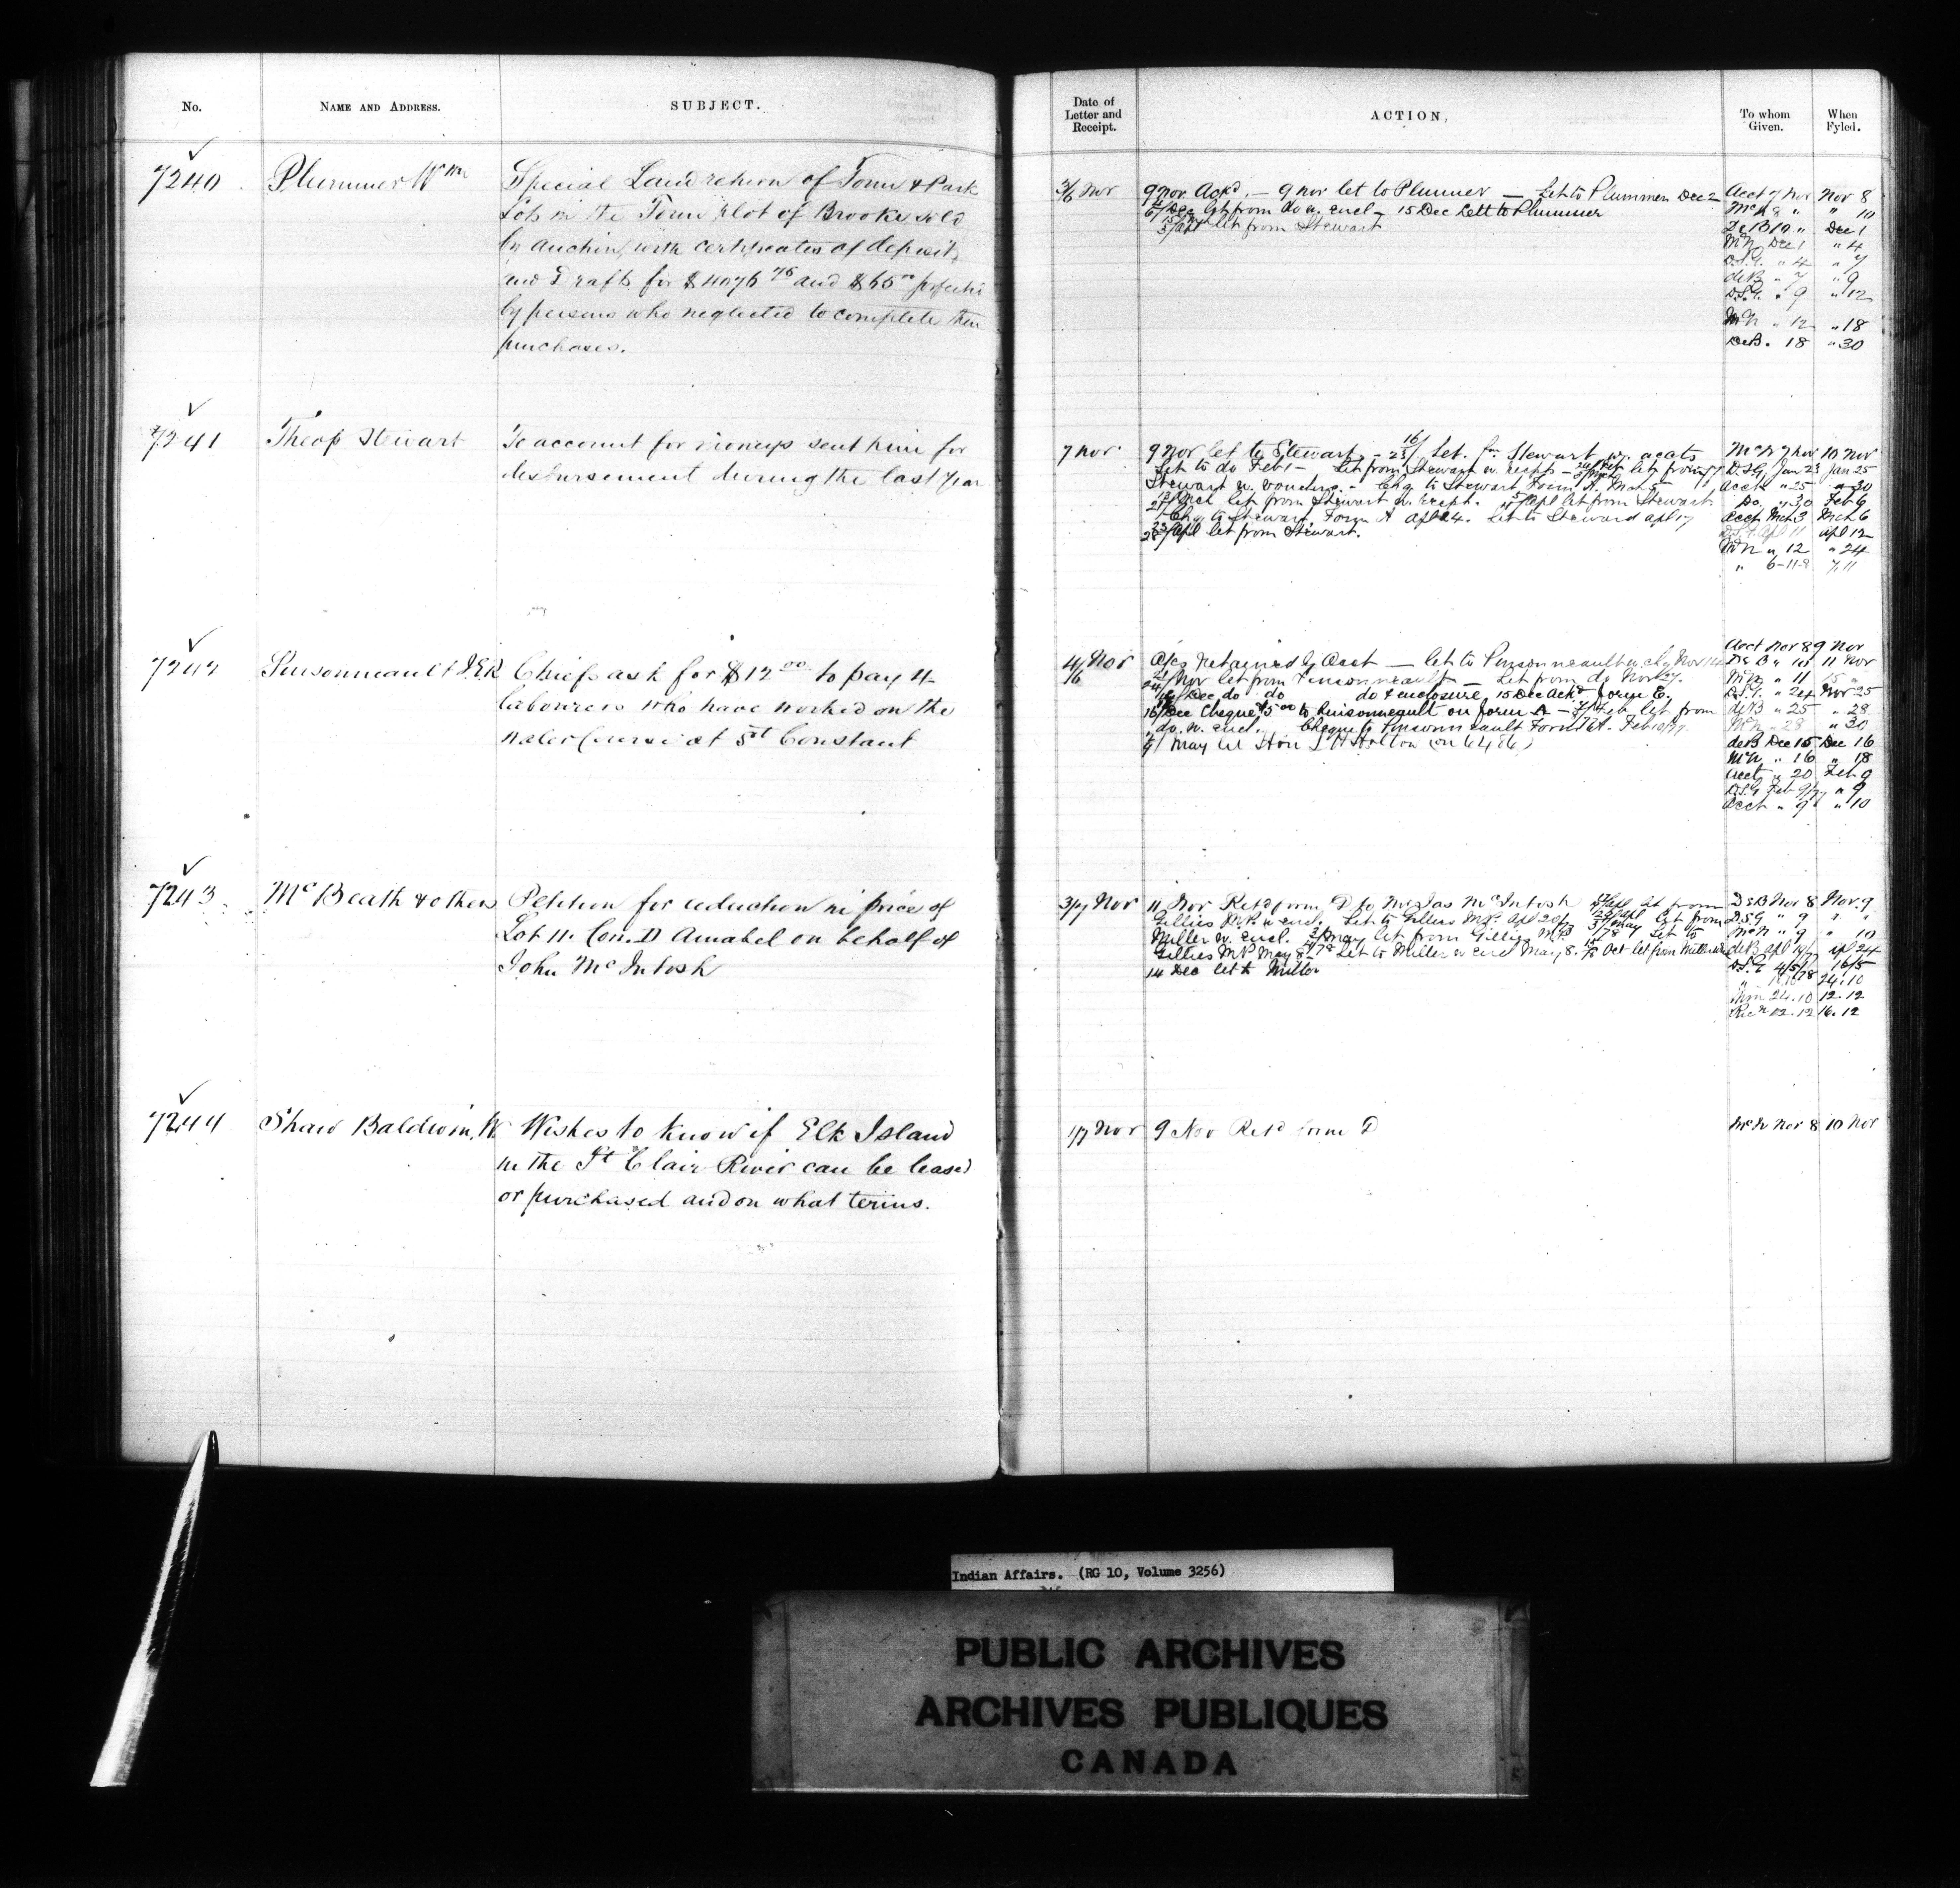 No.
NAME AND ADDRESS.
SUBJECT.
7240
Plummer Wm
Special Land return of Town & Park
Lots in the Town plot of Brooke sold
by auction, with certificates of deposit,
and Drafts for $4076 75 and $65 00
by persons who neglected to complete their
purchases.
7241
Theop Stewart
To account for moneys sent him for
disbursement during the last year
7242
Pinsonneault J.E.R.
Chiefs ask for $12 00 to pay 4
labourers who have worked on the
Water Course at St Constant
7243
McBeath & others
Petition for reduction in price of
Lot 11. Con. D Amabel on behalf of
John McIntosh
7244
Shaw Baldwin, W
Wishes to know if Elk Island
in the St Clair River can be leased
or purchased and on what terms.
Date of
Letter and
Receipt.
ACTION.
To whom
Given.
When
Fyled.
3/6 Nor
9 Nor Ackd. — 9 Nor let to Plummer — Let to Plummer Dec 2
6/Dec let from do w. encl — 15 Dec Lett to Plummer
let from Stewart
Acct 7 Nor Nor 8
McN 8 " " 10
De B 10 " Dec 1
McN Dec 1 " 4
D.S.G. " 4 " 7
deB " 7 " 9
D.S.G. " 9 " 12
McN " 12 " 18
DeB. 18 " 30
7 Nor
9 Nor let to Stewart — Let. fm Stewart w. accts
Let to do Feb 1 — Let from Stewart w. recpts — let from
Stewart w. vouchers — Chq to Stewart Form A. Mch 5
let from Stewart w. recpt. 5/Apl let from Stewart
Chq to Stewart Form A Apl 24. Let to Steward Apl 17
Apl let from Stewart.
McN 7 Nor 10 Nor
D.S.G. Jan 23 Jan 25
Acct " 25 " 30
Do. " 30 Feb 6
Acct Mch 3 Mch 6
D.S.G. Apl 11 Apl 12
McN " 12 " 24
" 6-11-8 7.11
4/6 Nor
A/cs retained by Acct — let to Pinsonneault w. chq Nor
Nor let from Pinsonneault — Let from do Nor 27.
Dec do do do & enclosure, 15 Dec Ackd Form E.
16/Dec Cheque $5 00 to Pinsonneault on Form A — Feb let from
do. w. encl. Cheque to Pinsonneault Form A. Feb 10/77.
May W Hon L H Holton (on 6486)
Acct Nor 8 9 Nor
De B " 10 11 Nor
McN " 11 15 "
D.S.G. " 24 Nor 25
deB " 25 " 28
McN " 28 " 30
deB Dec 15 Dec 16
McN " 16 " 18
Acct " 20 Feb 9
D.S.G Feb 9/77 " 9
Acct " 9 " 10
3/7 Nor
11 Nor Retd form D to Mr Jas McIntosh Apl let from
Gillies M.P. w encl. Let to Gillies M.P. Apl 20/77 let from
Miller w. encl. May let from Gillies M.P. May Let to
Gillies MP May 8 — Let to Miller w encl May 8. Oct let from Miller
14 Dec let to Miller
D S B Nor 8 Nor. 9
D.S.G " 9 " "
McN " 9 " 10
deB Apl 19/77 Apl 24
D.S.G 4/5/78 16/5
24.10
24.10 12.12
12.12 16.12
1/7 Nor
9 Nov Retd form D
McN Nor 8 10 Nor
Indian Affairs. (RG 10, Volume 3256)
PUBLIC ARCHIVES
ARCHIVES PUBLIQUES
CANADA